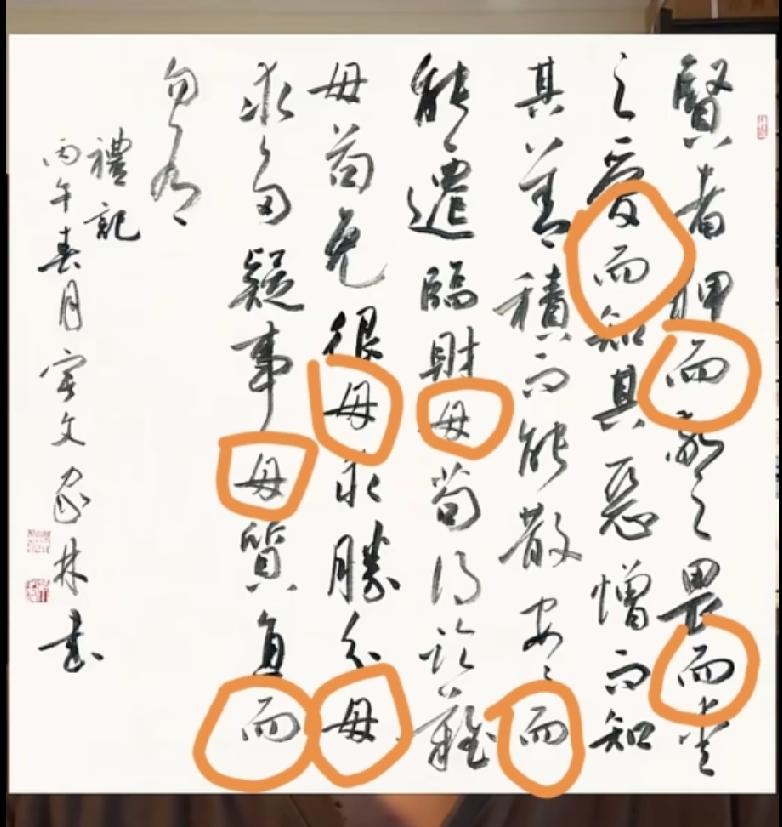 賢者狎而敬之畏而愛
之愛而知其惡憎而知
其善積而能散安安而
能遷臨財毋苟得臨難
毋苟免很毋求勝分毋
求多疑事毋質直而
勿有
禮記
丙午春月宇文家林書